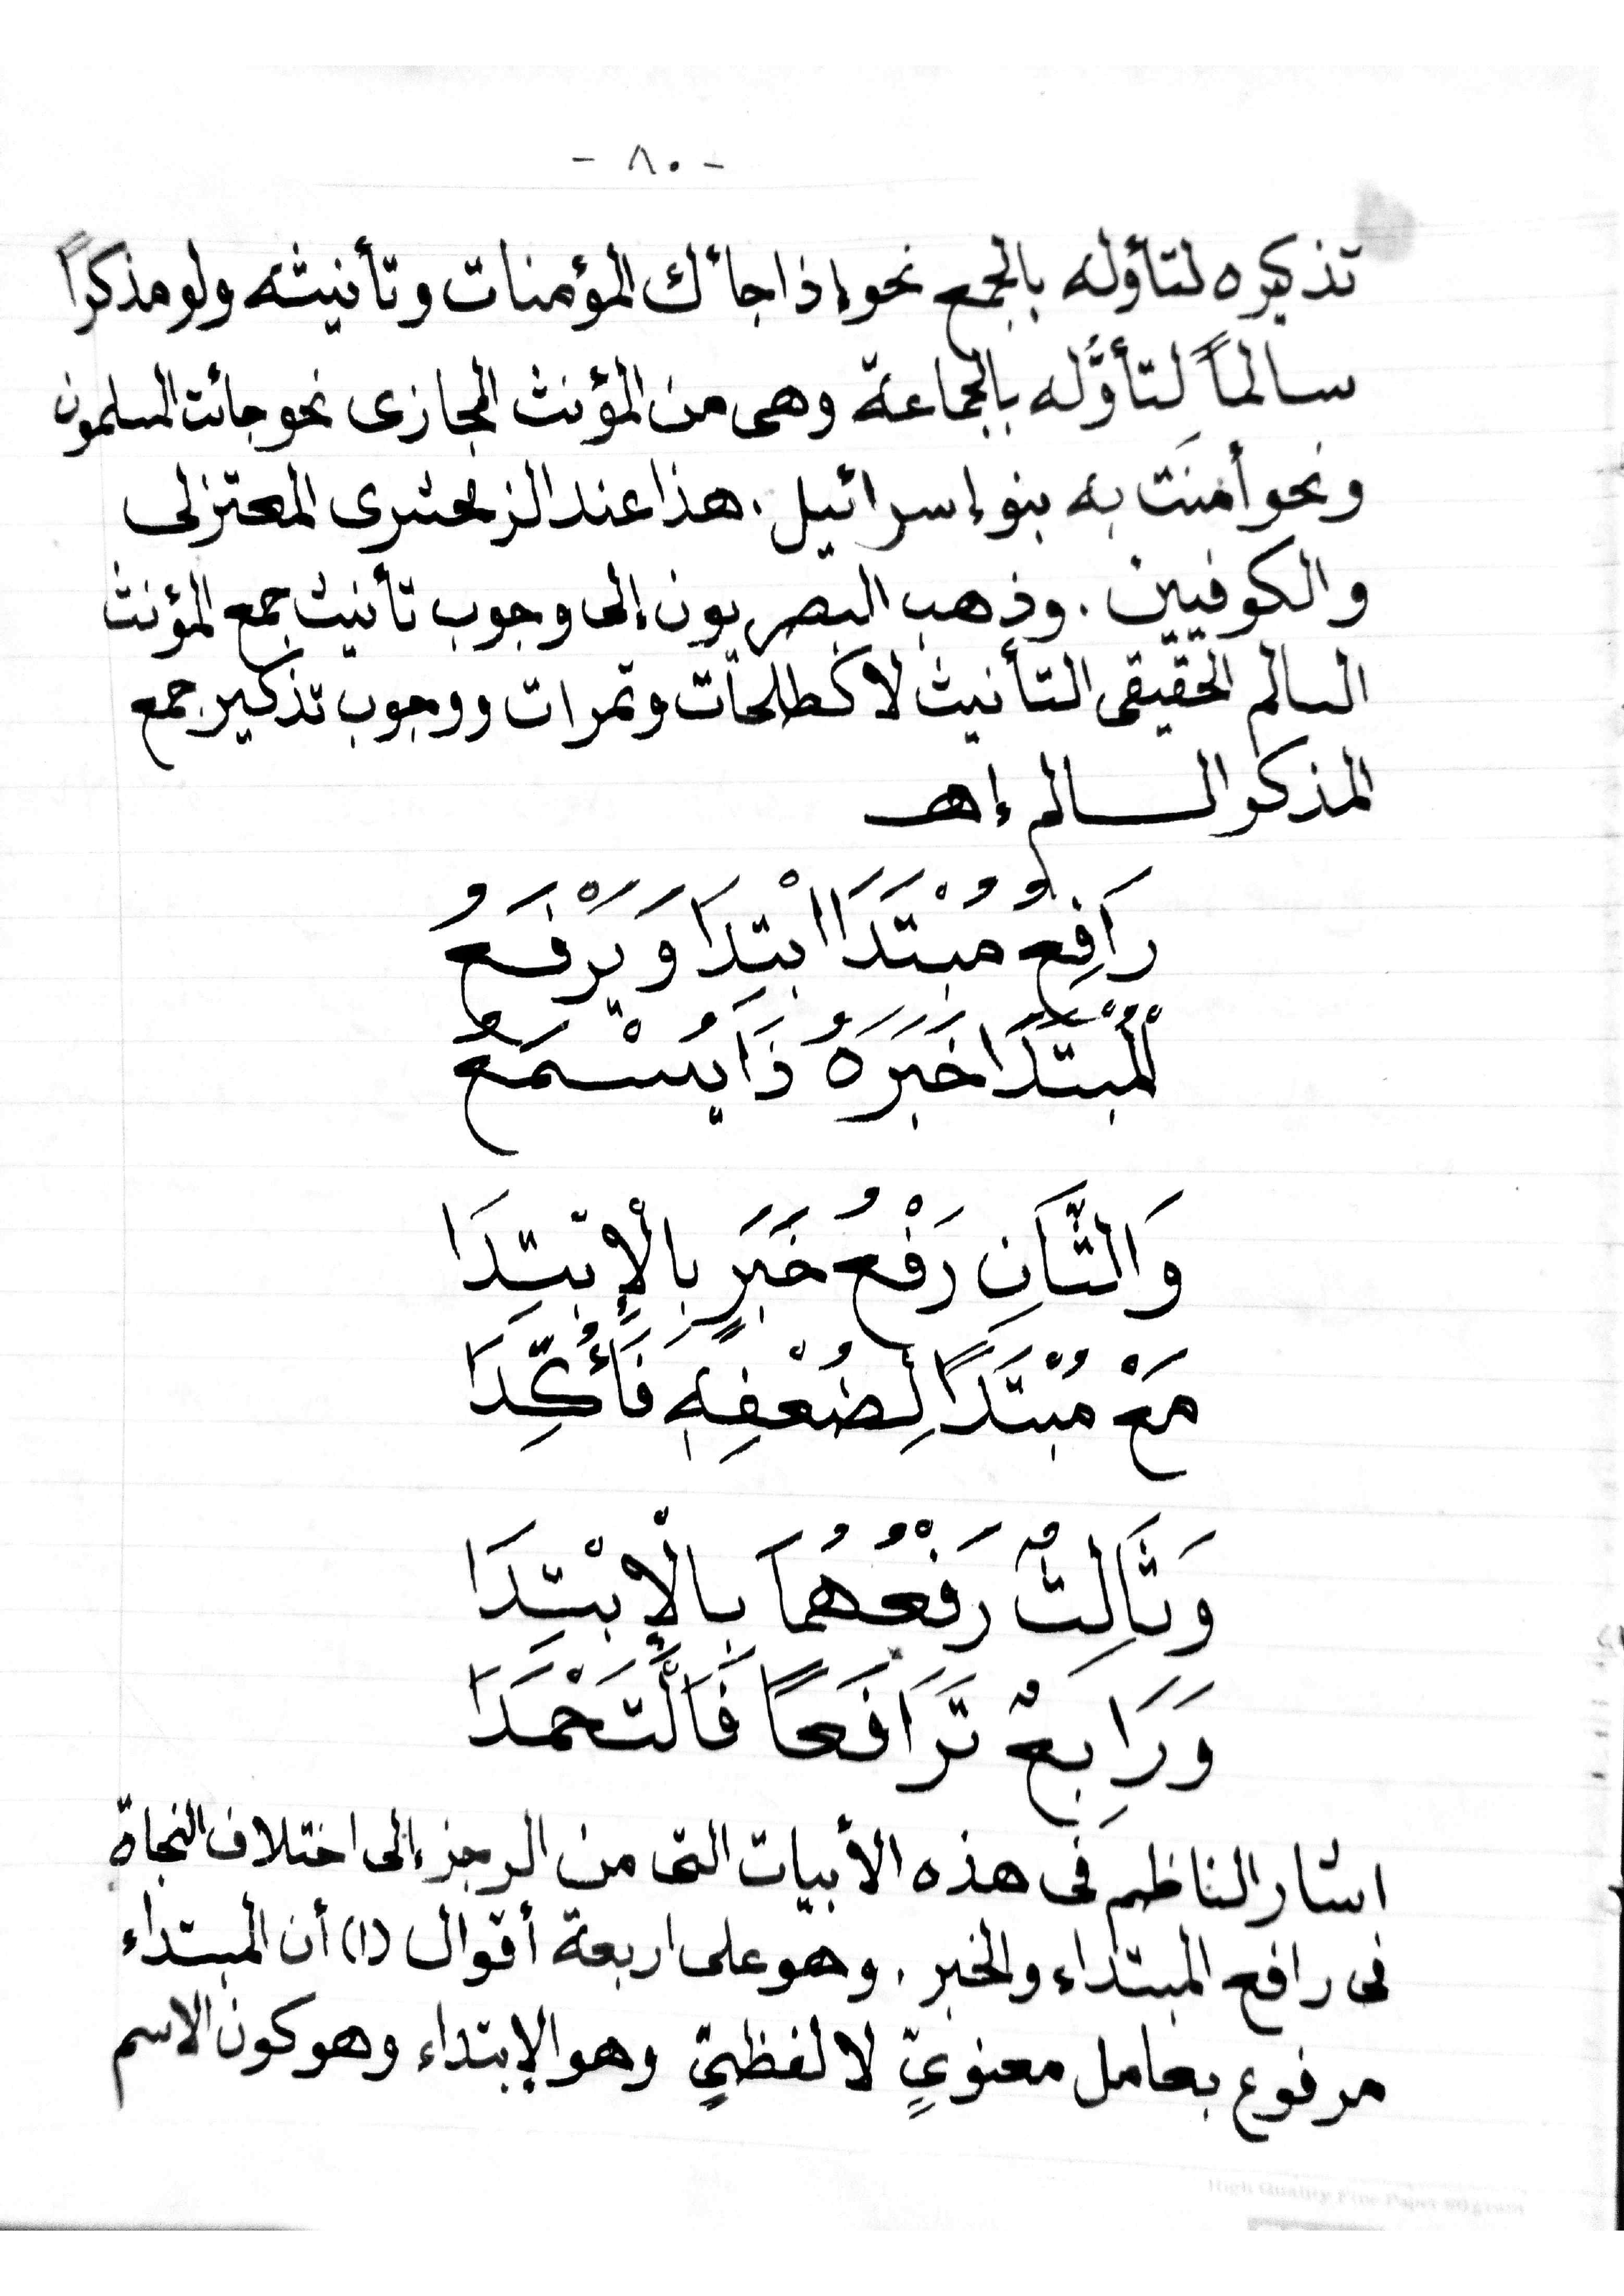 - ٨٠ -
تذكيره لتأوله بالجمع نحو إذا جاءك المؤمنات وتأنيثه ولو مذكرًا
سالمًا لتأوُّله بالجماعة وهى من المؤنث المجازى نحو جائت المسلمون
ونحو أمنَت به بنو إسرائيل. هذا عند الزمخشرى المعتزلى
والكوفيين. وذهب البصريون إلى وجوب تأنيث جمع المؤنث
السالم الحقيقى التأنيث لا كطلحات وتمرات ووجوب تذكير جمع
المذكر السالم إهـ
رَافِعُ مُبْتَدَا ابْتِدَا وَيَرْفَعُ
لْمُبْتَدَا خَبَرَهُ ذَا يُسْمَعُ
وَالثَّانِ رَفْعُ خَبَرٍ بِالْإِبْتِدَا
مَعْ مُبْتَدًا لِضُعْفِهِ فَأُكِّدَا
وَثَالِثٌ رَفْعُهُمَا بِالْإِبْتِدَا
وَرَابِعٌ تَرَافَعَا فَالْتَحْمَدَا
اشار الناظم فى هذه الأبيات التى من الرجز إلى اختلاف النحاة
فى رافع المبتداء والخبر. وهو على اربعة أقوال (١) أن المبتداء
مرفوع بعامل معنويٍّ لا لفظيٍّ وهو الإبتداء وهو كون الاسم
High Quality Fine Paper 80 gram